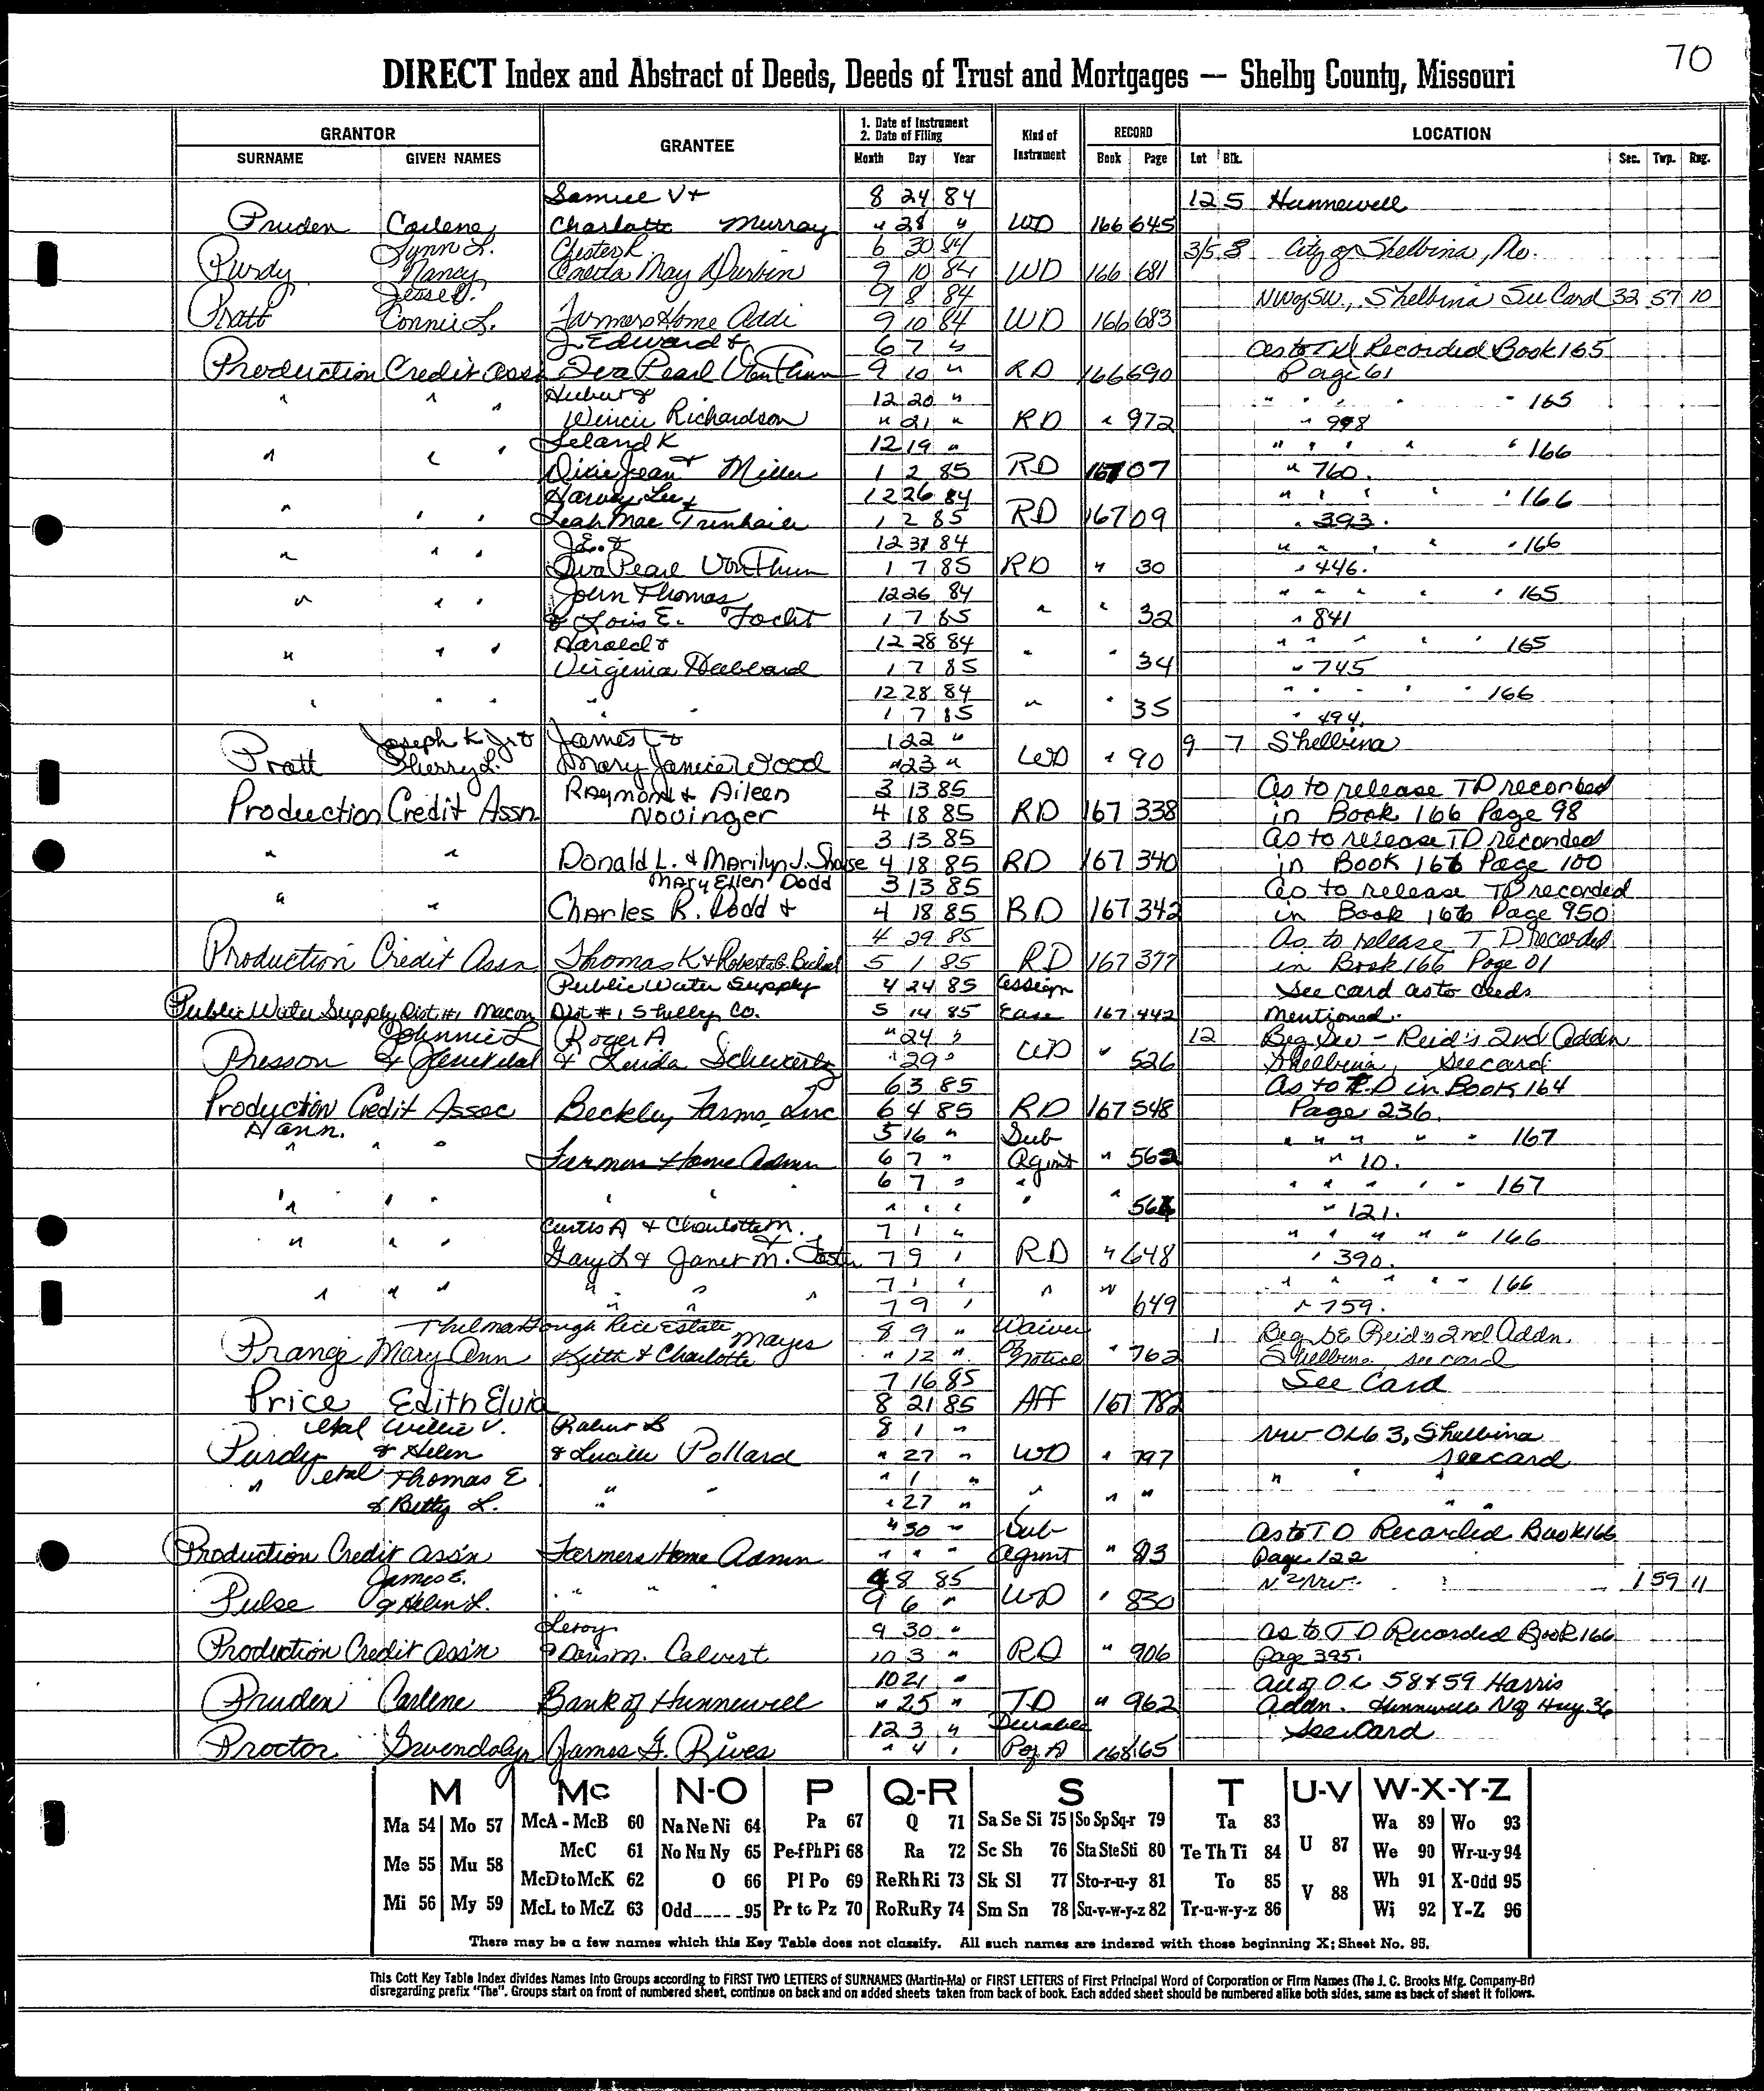 70
DIRECT Index and Abstract of Deeds, Deeds of Trust and Mortgages — Shelby County, Missouri
GRANTOR GRANTEE 1. Date of Instrument 2. Date of Filing Kind of Instrument RECORD LOCATION
SURNAME GIVEN NAMES Month Day Year Book Page Lot Blk. Sec. Twp. Rng.
Samuel V + 8 24 84 12 5 Hunnewell
Pruden Carlene Charlotte Murray " 28 " WD 166 645
Lynn L. Chester L 6 30 84 3/5 8 City of Shelbina, Mo.
Purdy Nancy Oneta May Durbin 9 10 84 WD 166 681
Jesse D. 9 8 84 NW of SW, Shelbina See Card 32 57 10
Pratt Connie L. Farmers Home Addi 9 10 84 WD 166 683
J. Edward & 6 7 " as to TD Recorded Book 165
Production Credit Assn Iva Pearl VonThun 9 10 " RD 166 690 Page 61
" " " Hubert & 12 20 " " " " " " 165
Wincie Richardson " 21 " RD " 972 " 998
Leland K 12 19 " " " " " " 166
" " " Dixie Jean & Miller 1 2 85 RD 167 07 " 760.
Harvey Lee & 12 26 84 " " " " " 166
" " " Leah Mae 1 2 85 RD 167 09 " 393.
J.E. & 12 31 84 " " " " " 166
" " " Iva Pearl VonThun 1 7 85 RD " 30 " 446.
John Thomas 12 26 84 " " " " " 165
" " " & Lois E. Focht 1 7 85 " " 32 " 841
Harold & 12 28 84 " " " " " 165
" " " Virginia Hubbard 1 7 85 " " 34 " 745
12 28 84 " " " " " 166
" " " " " 1 7 85 " " 35 " 494.
Joseph K Jr & James L & 1 22 " 9 7 Shelbina
Pratt Sherry L. Mary Janice Wood " 23 " WD " 90
Raymond & Aileen 3 13 85 As to release TD recorded
Production Credit Assn Novinger 4 18 85 RD 167 338 in Book 166 Page 98
3 13 85 As to release TD recorded
" " Donald L. & Marilyn J. Shouse 4 18 85 RD 167 340 in Book 166 Page 100
Mary Ellen Dodd 3 13 85 As to release TD recorded
" " Charles R. Dodd & 4 18 85 RD 167 342 in Book 166 Page 950
4 29 85 As to release TD recorded
Production Credit Assn Thomas K & Roberta G. 5 1 85 RD 167 377 in Book 166 Page 01
Public Water Supply 4 24 85 Assign See card as to deeds
Public Water Supply Dist #1 Macon Dist #1 Shelby Co. 5 14 85 Ease 167 442 Mentioned.
Johnnie L Roger A " 24 " 12 Beg SW - Reid's 2nd Addn
Presson & & Linda " 29 " WD " 526 Shelbina, see card
6 3 85 As to T.D in Book 164
Production Credit Assoc Beckley Farms, Inc 6 4 85 RD 167 548 Page 236.
Hann. 5 16 " Sub " " " " " 167
" " " Farmers Home Admn 6 7 " Agmt " 562 " 10.
6 7 " " " " " " " 167
" " " " " " " " " " " 564 " 121.
Curtis A & Charlotte M. 7 1 " " " " " " 166
" " " & Gary L & Janet M. Foster 7 9 " RD " 648 " 390.
7 1 " " " " " " 166
" " " " " " 7 9 " " " 649 " 759.
Thelma Gough Rice Estate 8 9 " Waiver 1 Beg SE Reid's 2nd Addn.
Prange Mary Ann Keith & Charlotte Mayes " 12 " of Notice " 762 Shelbina, see card
7 16 85 See Card
Price Edith Elvid 8 21 85 Aff 167 782
etal Willie V. Robert L 8 1 " NW-OL6 3, Shelbina
Purdy & Helen & Lucille Pollard " 27 " WD " 797 see card
" etal Thomas E " 1 " " " "
& Betty L. " " " 27 " " " " " "
" 30 " Sub As to T D Recorded Book 166
Production Credit Ass'n Farmers Home Admn " " " Agmt " 813 Page 122
James E. 4 8 85 N2 NW. 1 59 11
Pulse & Helen L. " " " 9 6 " WD " 830
Leroy 9 30 " As to T D Recorded Book 166
Production Credit Ass'n & Doris M. Calvert 10 3 " RD " 906 Page 395.
10 21 " All of OL 58 & 59 Harris
Pruden Carlene Bank of Hunnewell " 25 " TD " 962 Addn. Hunnewell N of Hwy 36
12 3 " Durable See Card
Proctor Gwendolyn James G. Rives " 4 " P of A 168 165
M Mc N-O P Q-R S T U-V W-X-Y-Z
Ma 54 Mo 57 McA - McB 60 Na Ne Ni 64 Pa 67 Q 71 Sa Se Si 75 So Sp Sq-r 79 Ta 83 U 87 Wa 89 Wo 93
Me 55 Mu 58 McC 61 No Nu Ny 65 Pe-f Ph Pi 68 Ra 72 Sc Sh 76 Sta Ste Sti 80 Te Th Ti 84 We 90 Wr-u-y 94
McD to McK 62 O 66 Pl Po 69 Re Rh Ri 73 Sk Sl 77 Sto-r-u-y 81 To 85 V 88 Wh 91 X-Odd 95
Mi 56 My 59 McL to McZ 63 Odd 95 Pr to Pz 70 Ro Ru Ry 74 Sm Sn 78 Su-v-w-y-z 82 Tr-u-w-y-z 86 Wi 92 Y-Z 96
There may be a few names which this Key Table does not classify. All such names are indexed with those beginning X; Sheet No. 95.
This Cott Key Table Index divides Names into Groups according to FIRST TWO LETTERS of SURNAMES (Martin-Ma) or FIRST LETTERS of First Principal Word of Corporation or Firm Names (The J. C. Brooks Mfg. Company-Br)
disregarding prefix "The". Groups start on front of numbered sheet, continue on back and on added sheets taken from back of book. Each added sheet should be numbered alike both sides, same as back of sheet it follows.